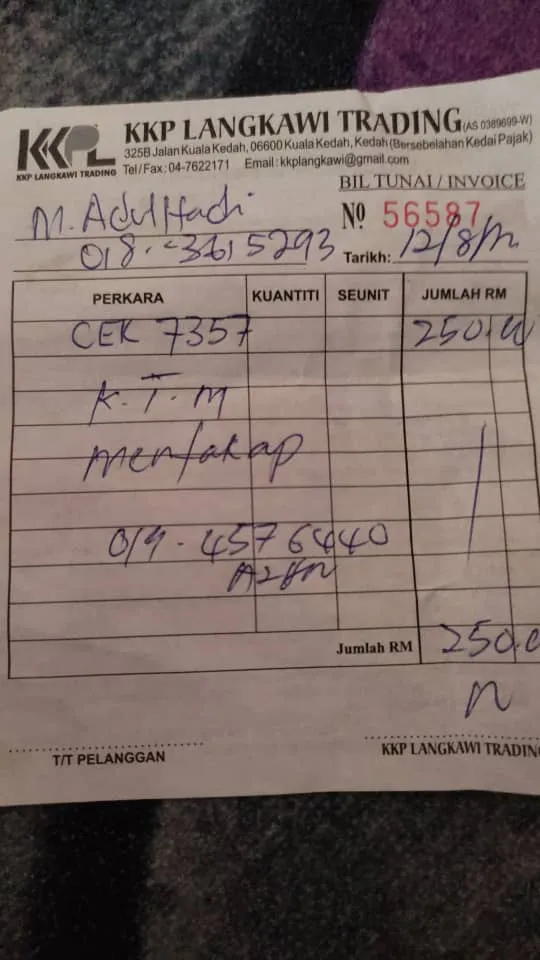 KKPL KKP LANGKAWI TRADING (AS 0389699-W)
KKP LANGKAWI TRADING
325B Jalan Kuala Kedah, 06600 Kuala Kedah, Kedah (Bersebelahan Kedai Pajak)
Tel/Fax: 04-7622171 Email: kkplangkawi@gmail.com
BIL TUNAI / INVOICE
M. Adul Hadi
Nº 56587
018-3615293
Tarikh: 12/8/
PERKARA KUANTITI SEUNIT JUMLAH RM
CEK 7357 250.00
K.T.M
019-4576440
Jumlah RM 250.0
T/T PELANGGAN
KKP LANGKAWI TRADING